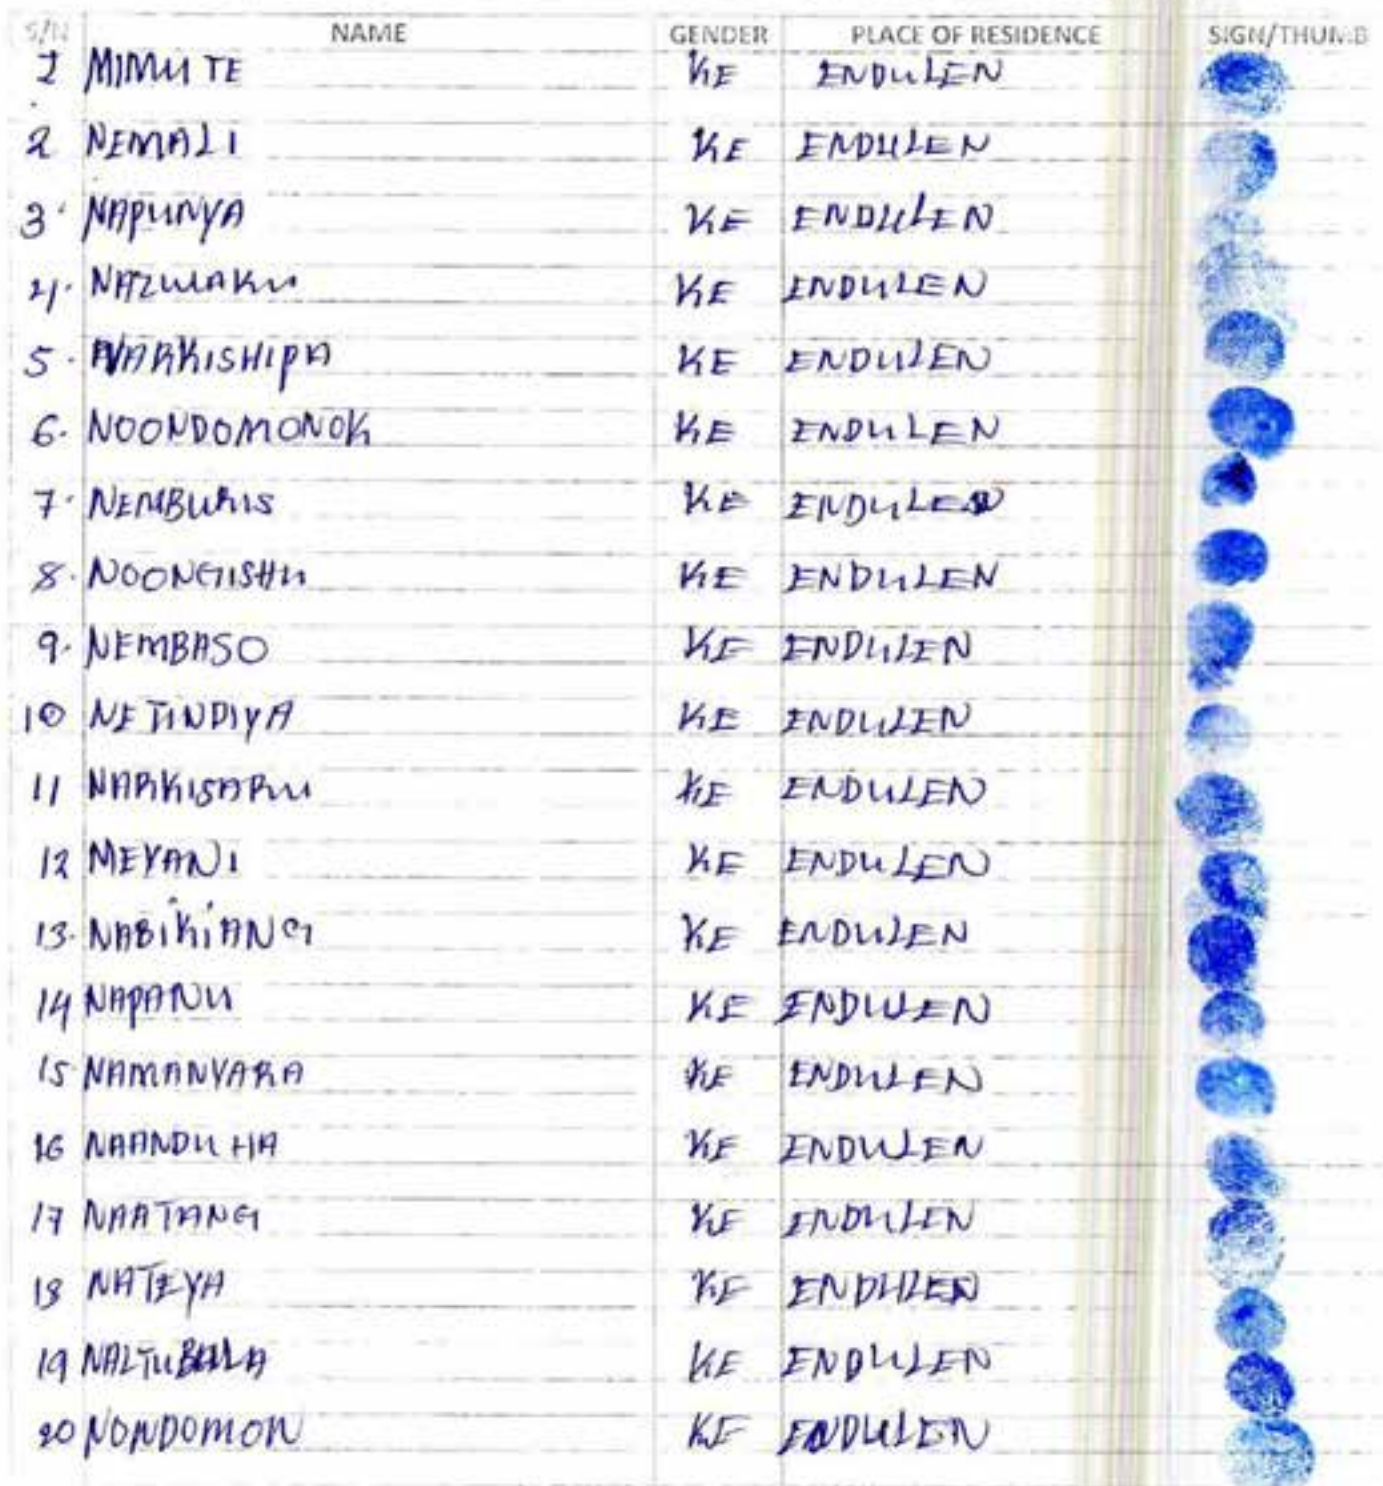 S/N NAME GENDER PLACE OF RESIDENCE SIGN/THUMB
1 MIMUTE KE ENDULEN
2 NEMALI KE ENDULEN
3. NAPUNYA KE ENDULEN
4. KE ENDULEN
5. NARKISHIPA KE ENDULEN
6. NOONDOMONOK KE ENDULEN
7. NEMBURIS KE ENDULEN
8. NOONGISHU KE ENDULEN
9. NEMBASO KE ENDULEN
10 NETINDIYA KE ENDULEN
11 NARKISARU KE ENDULEN
12 MEYANI KE ENDULEN
13. NABIKIANG KE ENDULEN
14 NAPANU KE ENDULEN
15 NAMANYARA KE ENDULEN
16 NAANDUHA KE ENDULEN
17 NAATANG KE ENDULEN
18 NATEYA KE ENDULEN
19 KE ENDULEN
20 NONDOMON KE ENDULEN